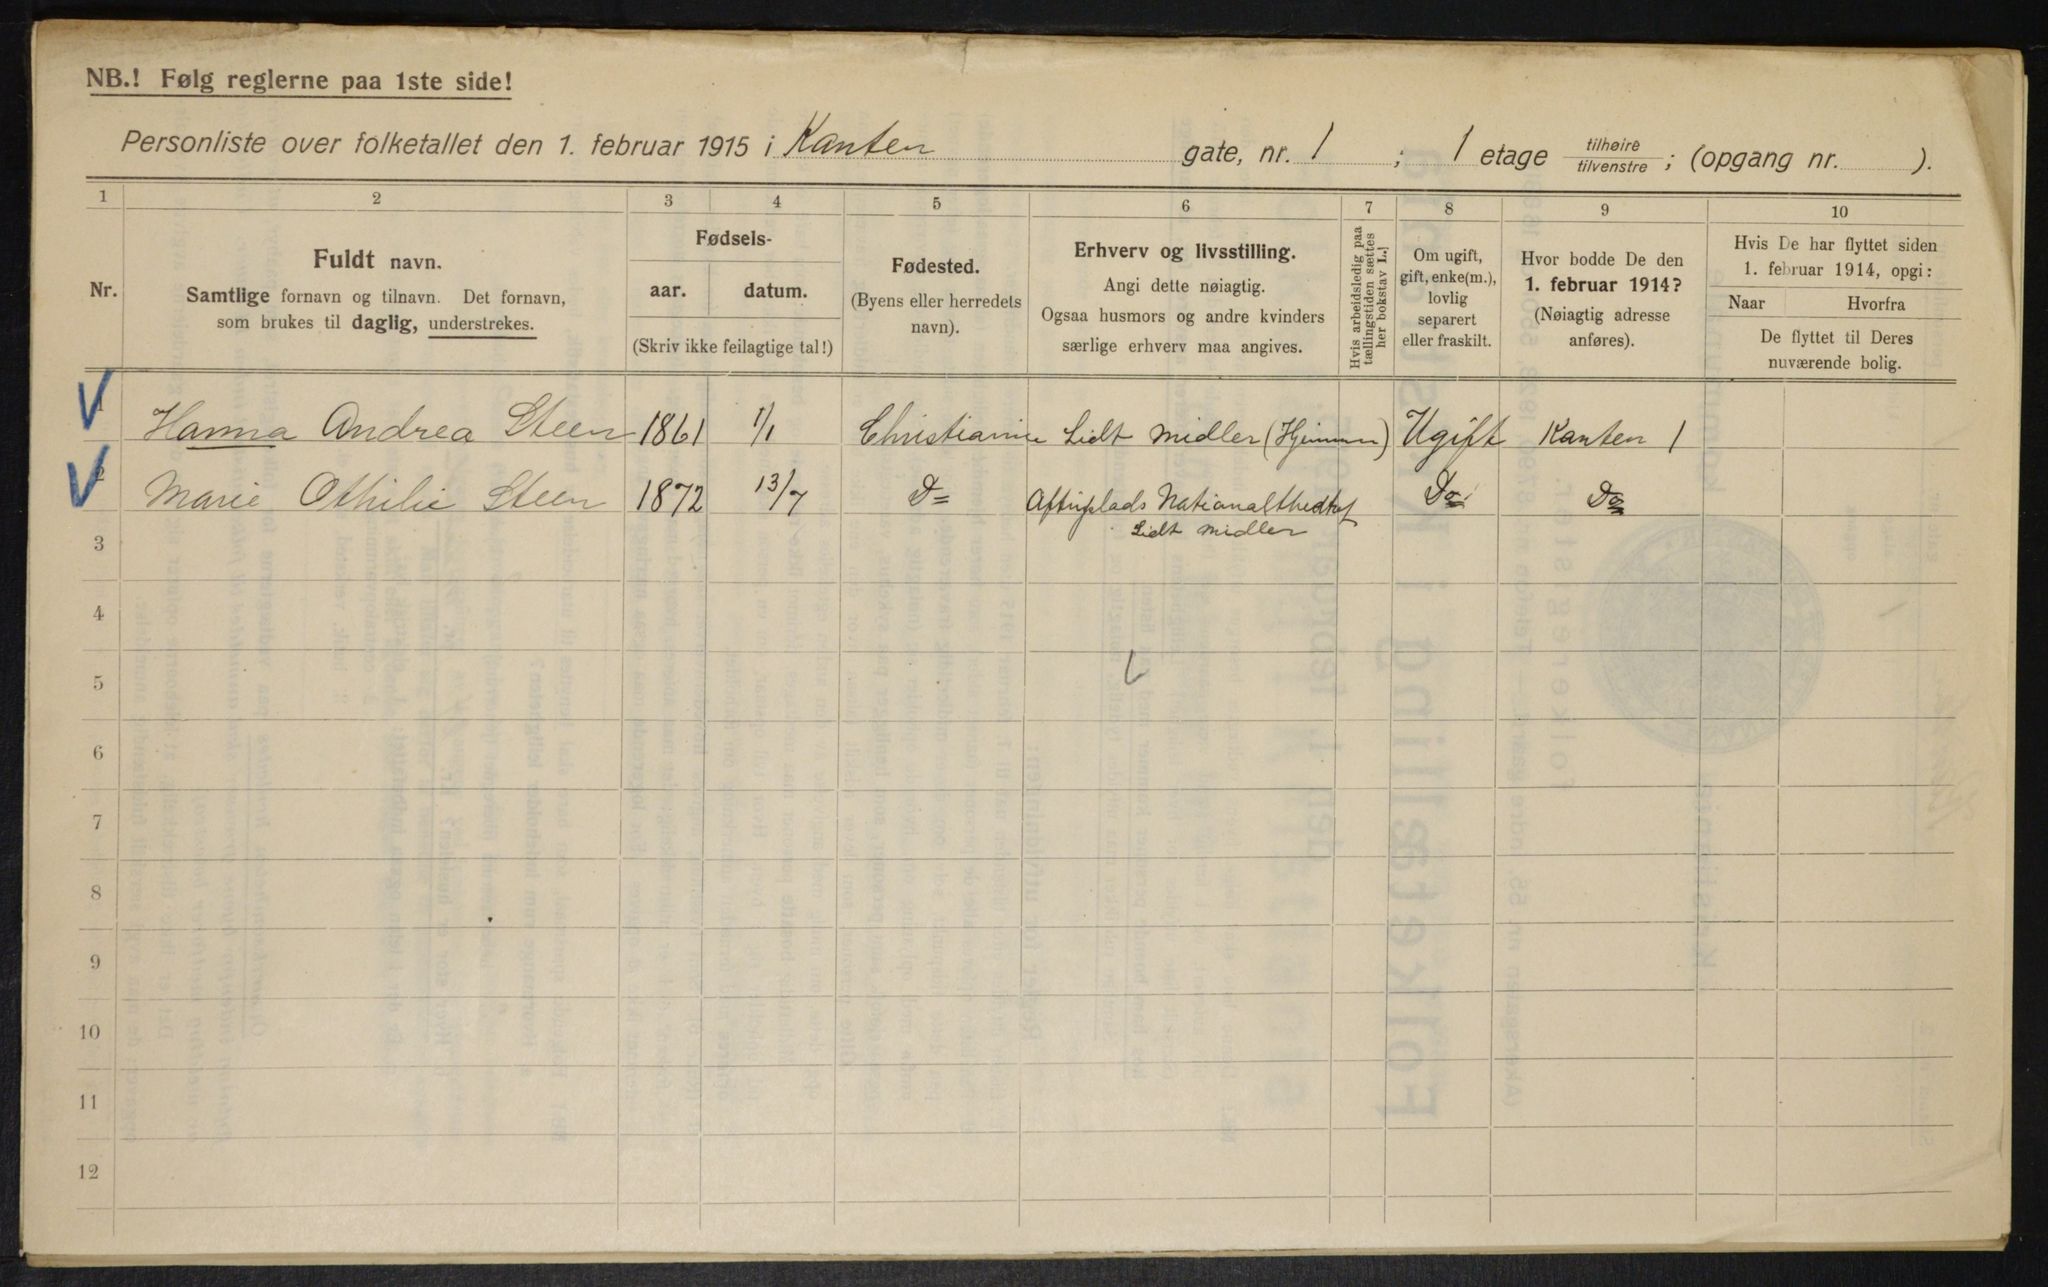 NB.! Følg reglerne paa 1ste side!
Personliste over folketallet den 1. februar 1915 i Kanten gate, nr. 1 ; 1 etage tilhøire tilvenstre ; (opgang nr. ).
1 2 3 4 5 6 7 8 9 10
Nr.
Fuldt navn.
Samtlige fornavn og tilnavn. Det fornavn,
som brukes til daglig, understrekes.
Fødsels-
aar. datum.
(Skriv ikke feilagtige tal!)
Fødested.
(Byens eller herredets
navn).
Erhverv og livsstilling.
Angi dette nøiagtig.
Ogsaa husmors og andre kvinders
særlige erhverv maa angives.
Hvis arbeidsledig paa
tællingstiden sættes
her bokstav L.
Om ugift,
gift, enke(m.),
lovlig
separert
eller fraskilt.
Hvor bodde De den
1. februar 1914?
(Nøiagtig adresse
anføres).
Hvis De har flyttet siden
1. februar 1914, opgi:
Naar Hvorfra
De flyttet til Deres
nuværende bolig.
1 Hanna Andrea Steen 1861 1/1 Christiania Lidt Midler (Hjemme) Ugift Kanten 1
2 Marie Othilie Steen 1872 13/7 Do Nationaltheatret Do Do
Lidt Midler
3
4
5
6
7
8
9
10
11
12